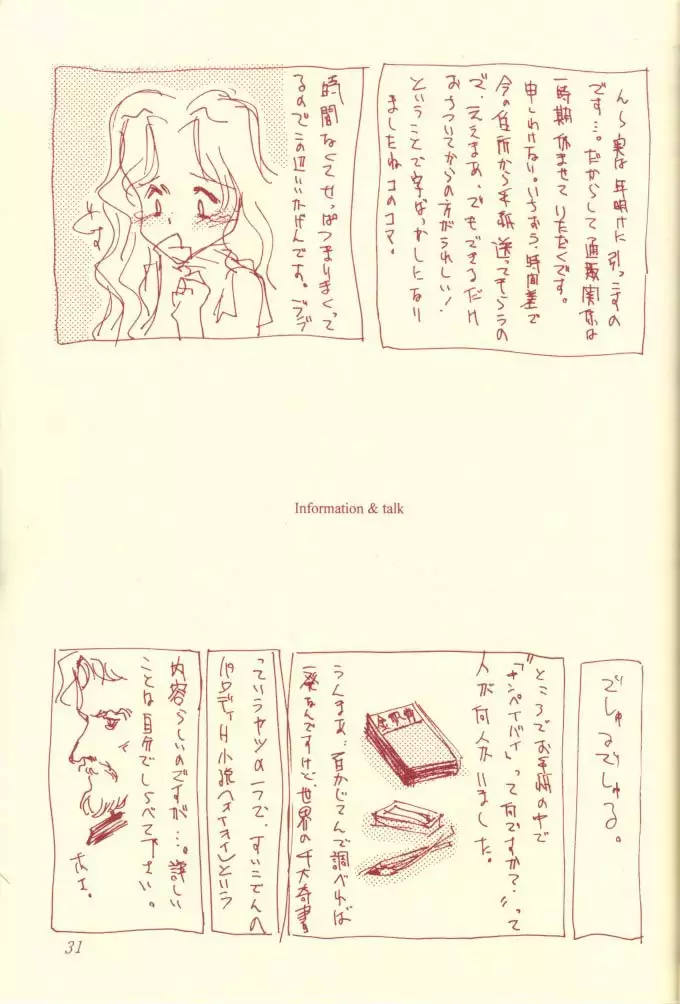 んら実は年明けに引っこすの
です…。だからして通販関係は
一時期休ませていただくです。
申しわけない。いちおう、時間差で
今の住所から手紙送ってもらうの
で、ええまあ、でもできるだけ
おちついてからの方がうれしい!
ということで字ばっかしになり
ましたねコのコマ。
時間なくてせっぱつまりまくって
るのでこの辺いいかげんです。
です
Information & talk
でしゅるでしゅる。
ところでお手紙の中で
「キンペイバイ」って何ですか?…って
人が何人かいました。
金瓶梅
うんまあ…百かじてんで調べれば
一発なんですけど、世界の千大奇書
っていうヤツの一つで、すいこでんの
パロディH小説(オイオイ)という
内容らしいのですが…。詳しい
ことは自分でしらべて下さい。
31